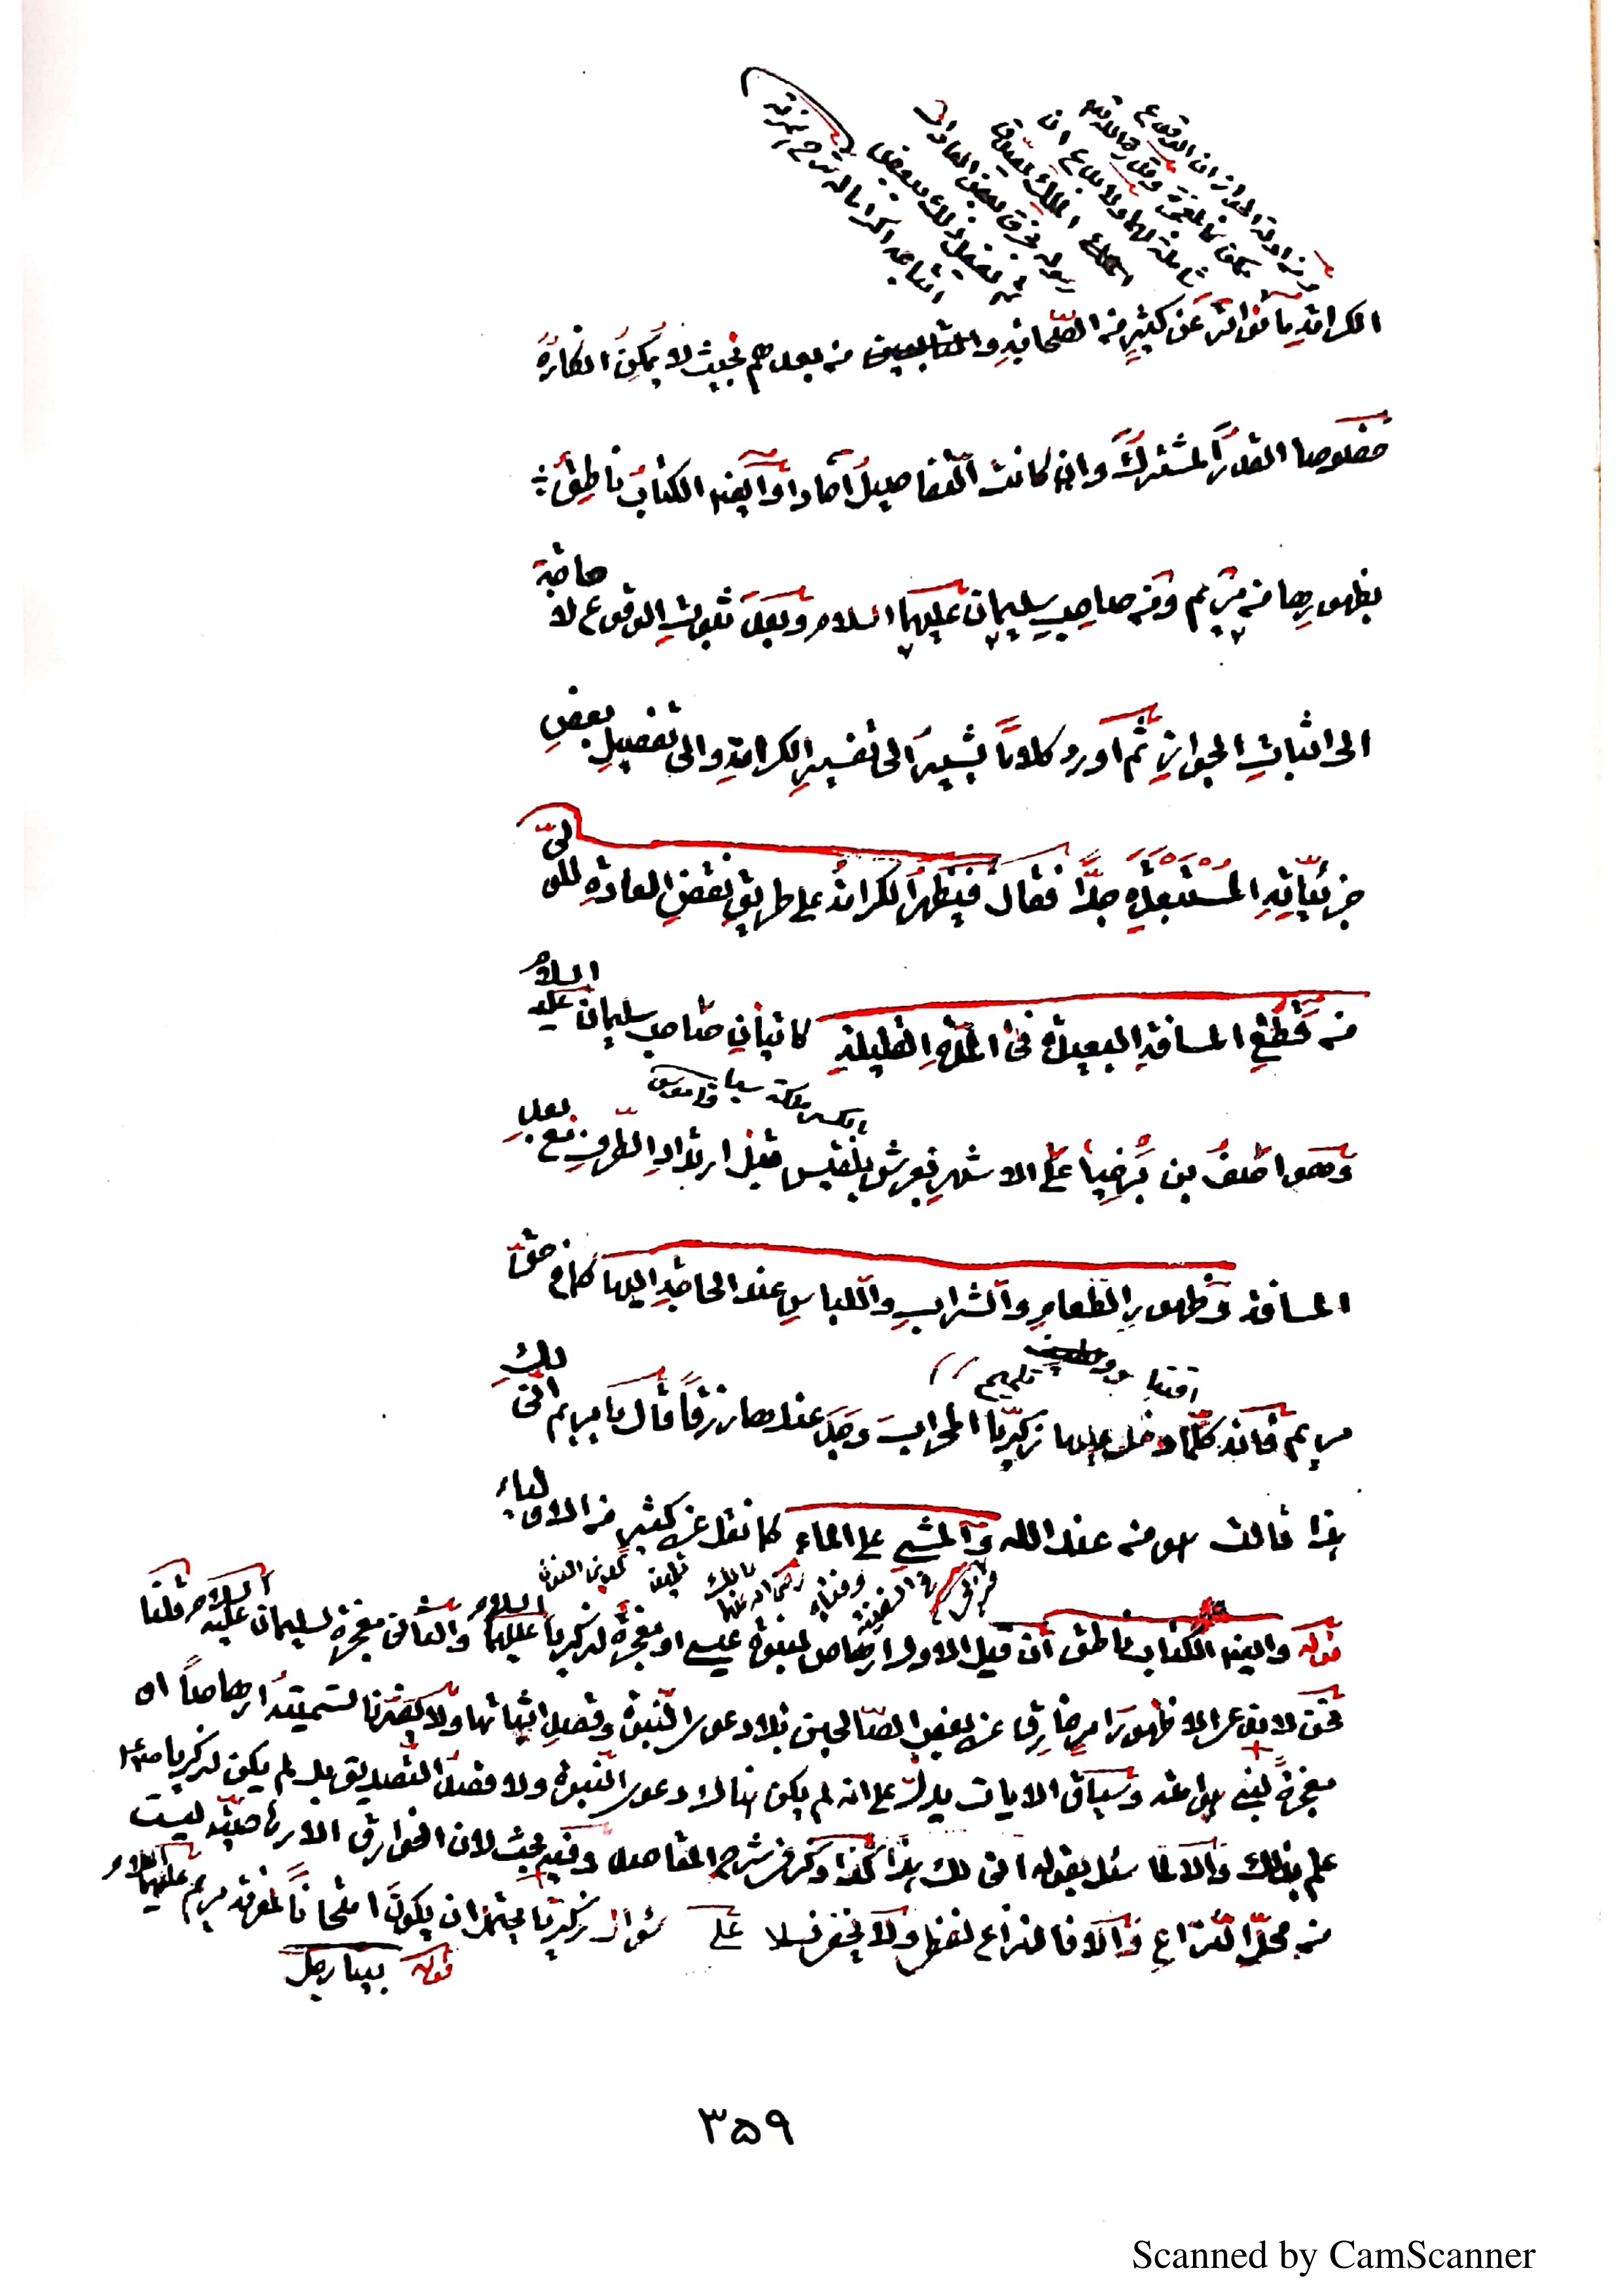 ومن ادلة الجواز ان الوقوع
ممكن كالمعجزة وقدرة الله تع
شاملة لهما ولا مانع ان
الملك يصدق
رسوله بخرق بعض العادات
ثم يفعل ذلك لبعض
اتباعه اكراما له شرح
الكرامة ما تواتر عن كثير من الصحابة والتابعين من بعدهم بحيث لا يمكن انكاره
خصوصا القدر المشترك وان كانت التفاصيل آحادا وايضا الكتاب ناطق
بظهورها من مريم ومن صاحب سليمان عليهما السلام وبعد ثبوت الوقوع لا حاجة
الى اثبات الجواز ثم اورد كلاما يشير الى تفسير الكرامة والى تفصيل بعض
جزئياته المستبعدة جدا فقال فيظهر الكرامة على طريق نقض العادة للولي
من قطع المسافة البعيدة في المدة القليلة كاتيان صاحب سليمان عليه السلام
ملكة سبا قاموس
وهو آصف بن برخيا على الاشهر بعرش بلقيس قبل ارتداد الطرف مع بعد
المسافة وظهور الطعام والشراب واللباس عند الحاجة اليها كما في حق
مريم فانه كلما دخل عليها زكريا المحراب وجد عندها رزقا قال يا مريم انى لك
هذا قالت هو من عند الله والمشي على الماء كما نقل عن كثير من الاولياء
قوله وايضا الكتاب ناطق ان قيل الاول ارهاص لنبوة عيسى او معجزة لزكريا عليهما السلام والثاني معجزة لسليمان عليه السلام قلنا
نحن لا ندعي الا ظهور امر خارق عن بعض الصالحين بلا دعوى النبوة وقصد اثباتها ولا يضرنا تسميته ارهاصا او
معجزة لنبي هو امته وسياق الآيات يدل على انه لم يكن هناك دعوى النبوة ولا قصد التصديق بل لم يكن لزكريا
علم بذلك والا لما سئل بقوله انى لك هذا كذا ذكر في شرح المقاصد وفيه بحث لان الخوارق الارهاصية ليست
من محل النزاع والا فالنزاع لفظي ولا يخفى فسلا على سؤال زكريا يحتمل ان يكون امتحانا لمعرفة مريم عليهما السلام
قوله بينا رجل
٣٥٩
Scanned by CamScanner